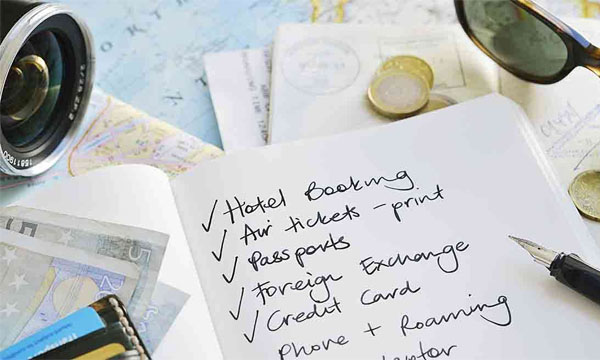 ✓ Hotel Booking
✓ Air tickets - print
✓ Passports
✓ Foreign Exchange
✓ Credit Card
Phone + Roaming
5
5